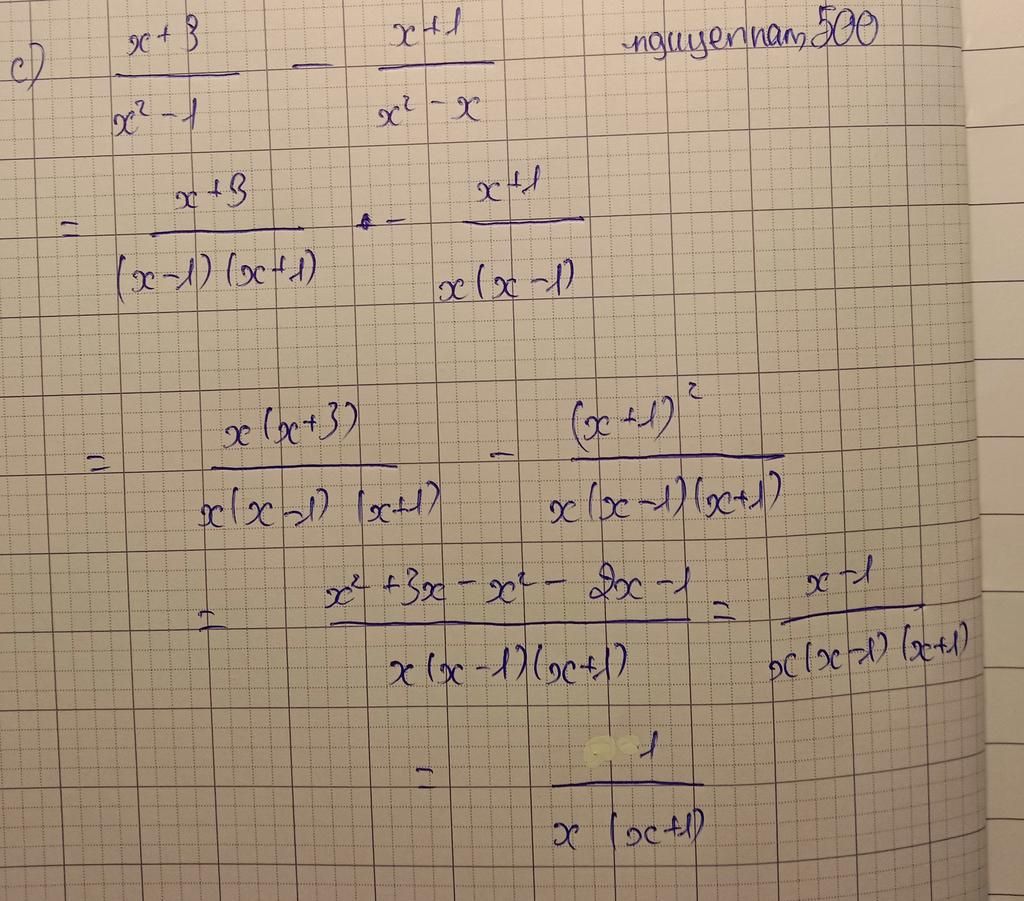 c) \frac{x+3}{x²-1} - \frac{x+1}{x²-x} nguyennam500
= \frac{x+3}{(x-1)(x+1)} - \frac{x+1}{x(x-1)}
= \frac{x(x+3)}{x(x-1)(x+1)} - \frac{(x+1)²}{x(x-1)(x+1)}
= \frac{x²+3x-x²-2x-1}{x(x-1)(x+1)} = \frac{x-1}{x(x-1)(x+1)}
= \frac{1}{x(x+1)}